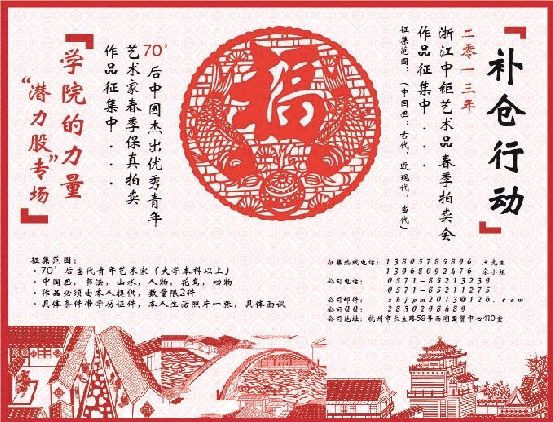 『补仓行动』
二零一三年
浙江中钜艺术品春季拍卖会
作品征集中....
征集范围:(中国画:古代、近现代、当代)
福
70'后中国杰出优秀青年
艺术家春季保真拍卖
作品征集中...
『学院的力量
“潜力股专场”』
征集范围:
·70'后当代青年艺术家(大学本科以上)
·中国画,书法,山水,人物,花鸟,动物
·作品必须由本人提供,数量限2件
·具体条件带学历证件,本人生活照片一张,具体面议
征集热线电话:
公司电话: 0571-85213239
0571-85211275
公司邮件: zhjpm2013@126.com
公司QQ: 2830298489